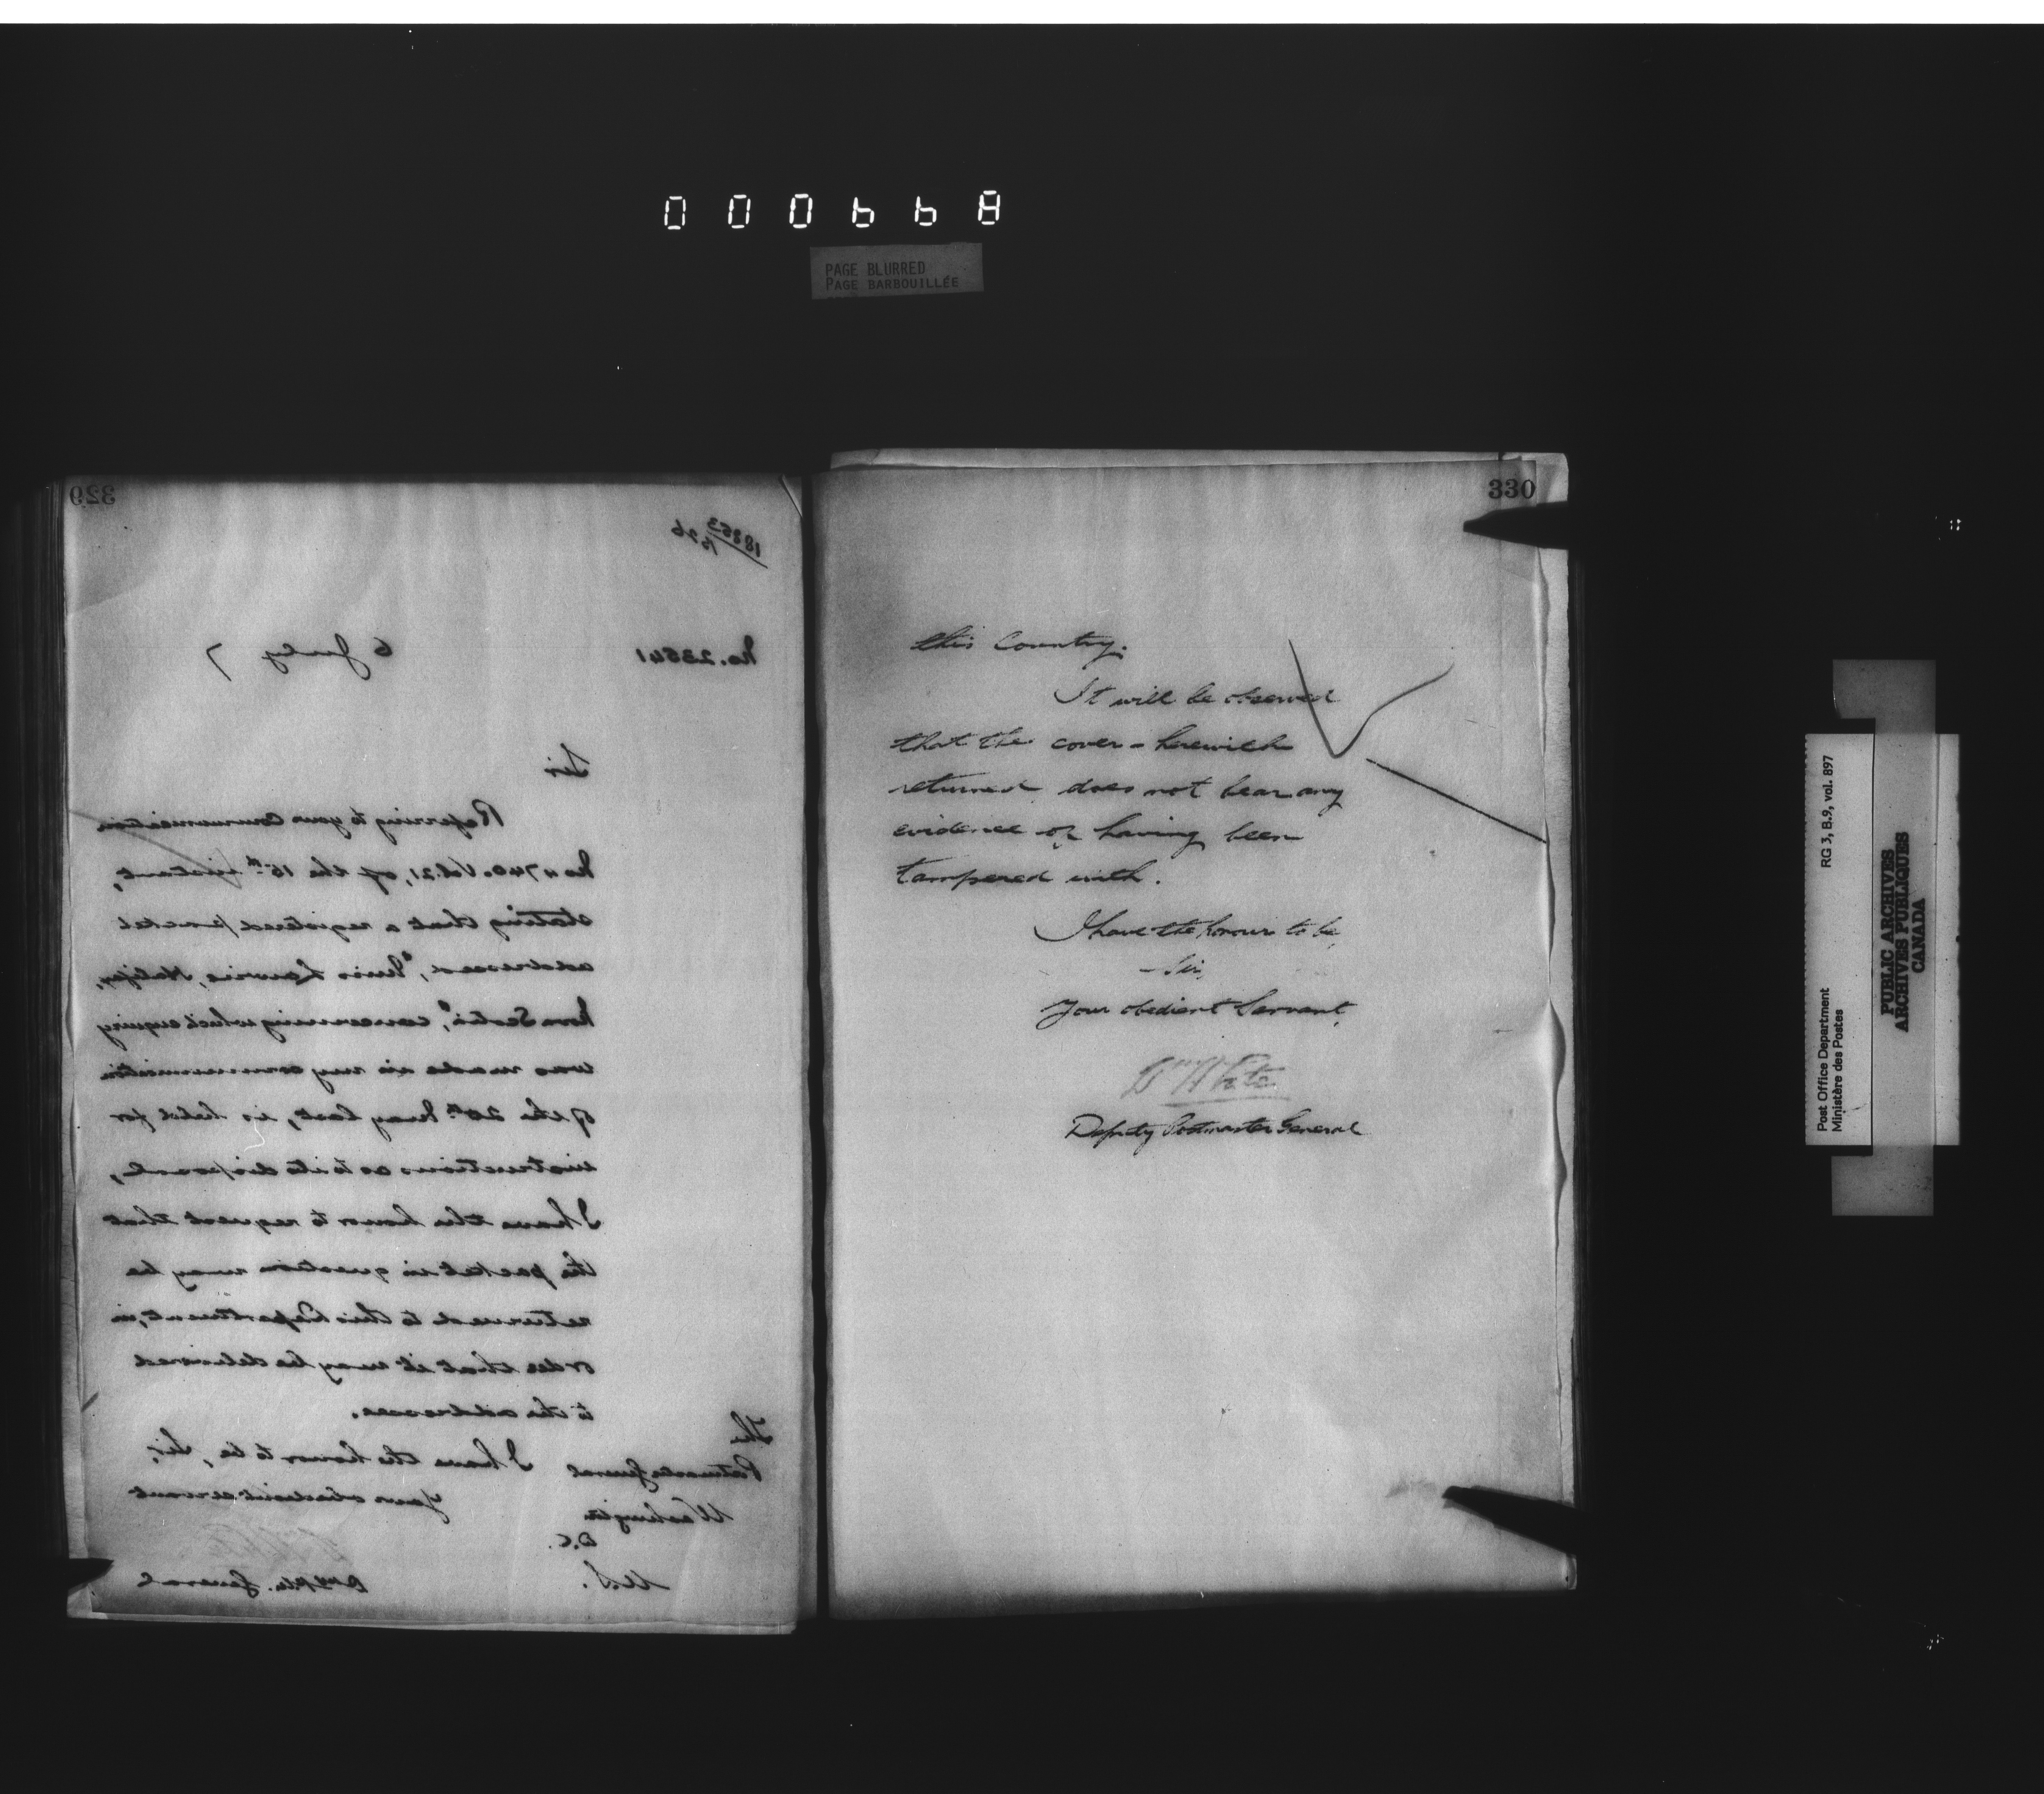 000668
PAGE BLURRED
PAGE BARBOUILLÉE
329
18863
1526
No. 23541 6 July 7
Sir
Referring to your Communication
No 4740. Vol. 21, of the 15th instant,
stating that a registered packet
addressed, "Miss Lawrie, Halifax,
Nova Scotia", concerning which enquiry
was made in my communication
of the 20th May last, is held for
instructions as to its disposal,
I have the honor to request that
the packet in question may be
returned to this Department, in
order that it may be delivered
to the addressee.
I have the honor to be, Sir,
Your obedient servant
Dep. P.M. General
The
Postmaster General
Washington
D.C.
U.S.
330
this Country.
It will be observed
that the cover - herewith
returned does not bear any
evidence of having been
tampered with.
I have the honour to be,
Sir,
Your obedient Servant,
Wm White
Deputy Postmaster General
Post Office Department
Ministère des Postes
RG 3, B.9, vol. 897
PUBLIC ARCHIVES
ARCHIVES PUBLIQUES
CANADA